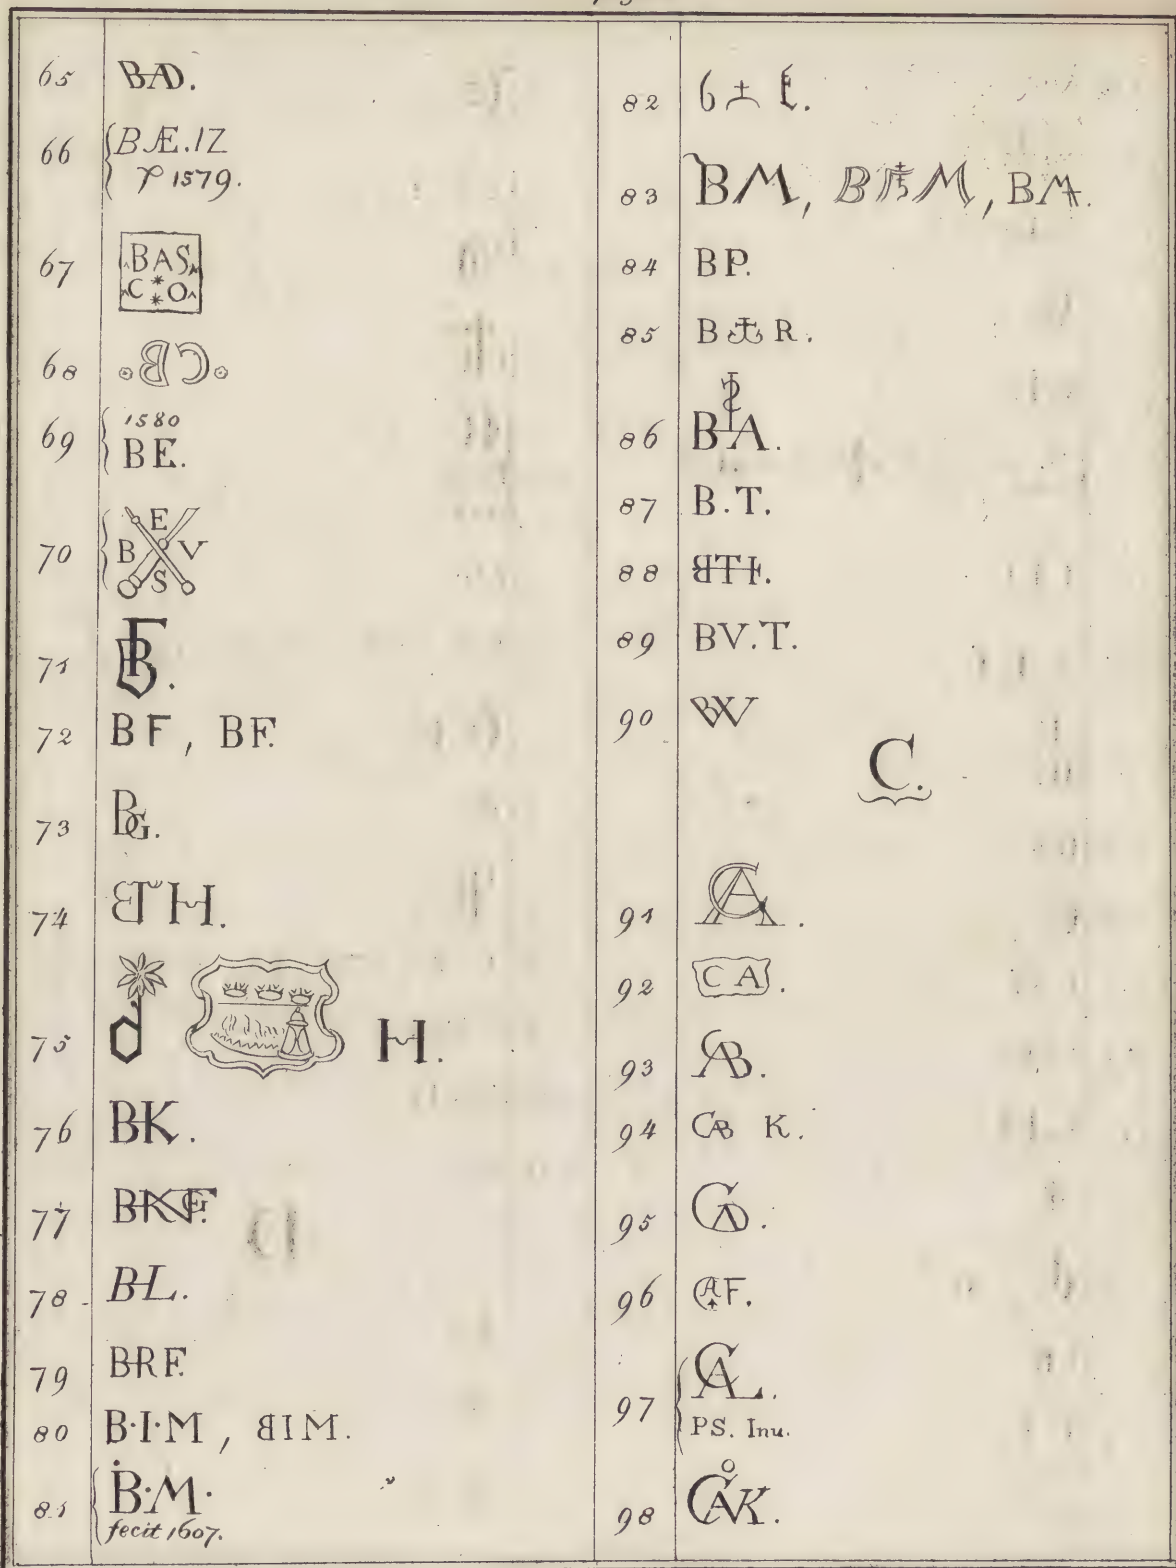 65 BAD.
66 BÆ.IZ
1579.
67 BAS
C O
68 CB
69 1580
BE.
70 E
B V
S
71 BF.
72 BF, BF.
73 BG.
74 BTH.
75 d H.
76 BK.
77 BKGF.
78 BL.
79 BRF.
80 B·I·M, BIM.
81 B·M·
fecit 1607.
82 6 E.
83 BM, BM, BM.
84 BP.
85 B R.
86 BA.
87 B.T.
88 BTI.
89 BV.T.
90 BW
C.
91 CA.
92 CA.
93 CAB.
94 CAB K.
95 CAD.
96 CAF.
97 CAL.
PS. Inu.
98 CAK.